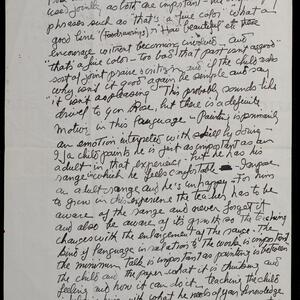 used jointly as both are important - he
phrases such as "that's a fine color" "what a
good line" (For drawings) "How beautiful" etc these
encourage without becoming involved - and
"that's a fine color - too bad that part isn't as good"
sort of joint praise & criticism and if the child asks
why isn't it good again be simple and say
"it isn't as pleasing" This probably sounds like
drivel to you Rose, but there is a definite
motive in this language - Painting is primarily
an emotion interpreted with skill by doing -
If a child paints he is just as important as an
adult in that experience - but he has his
range in which he feels comfortable - Impose
an adult range and he's unhappy. For him
to grow in this experience the teacher has to be
aware of the range and never forget it
and also be aware of its growth as the teaching
changes with the enlargement of the range. The
kind of language in relation to the works is important
the minimum talk is important as painting is between
the child and the paper - what it is thinking and
feeling and how it can do it - Teaching the child
with what he needs of your knowledge